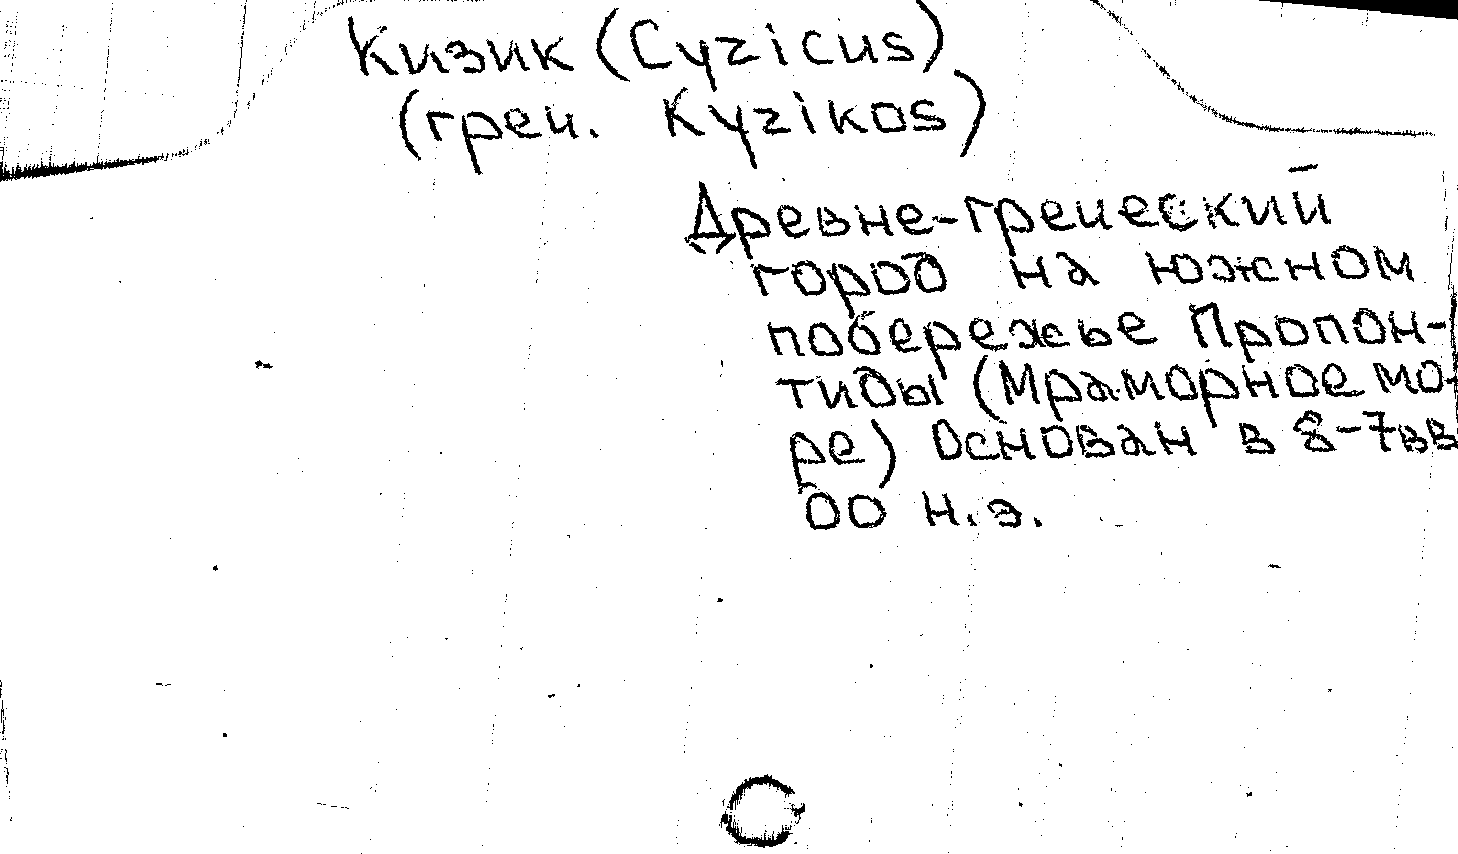 Кизик (Cyzicus)
(греч. Kyzikos)
Древне-греческий
город на южном
побережье Пропон-
тиды (Мраморное мо-
ре) Основан в 8-7вв
до н.э.